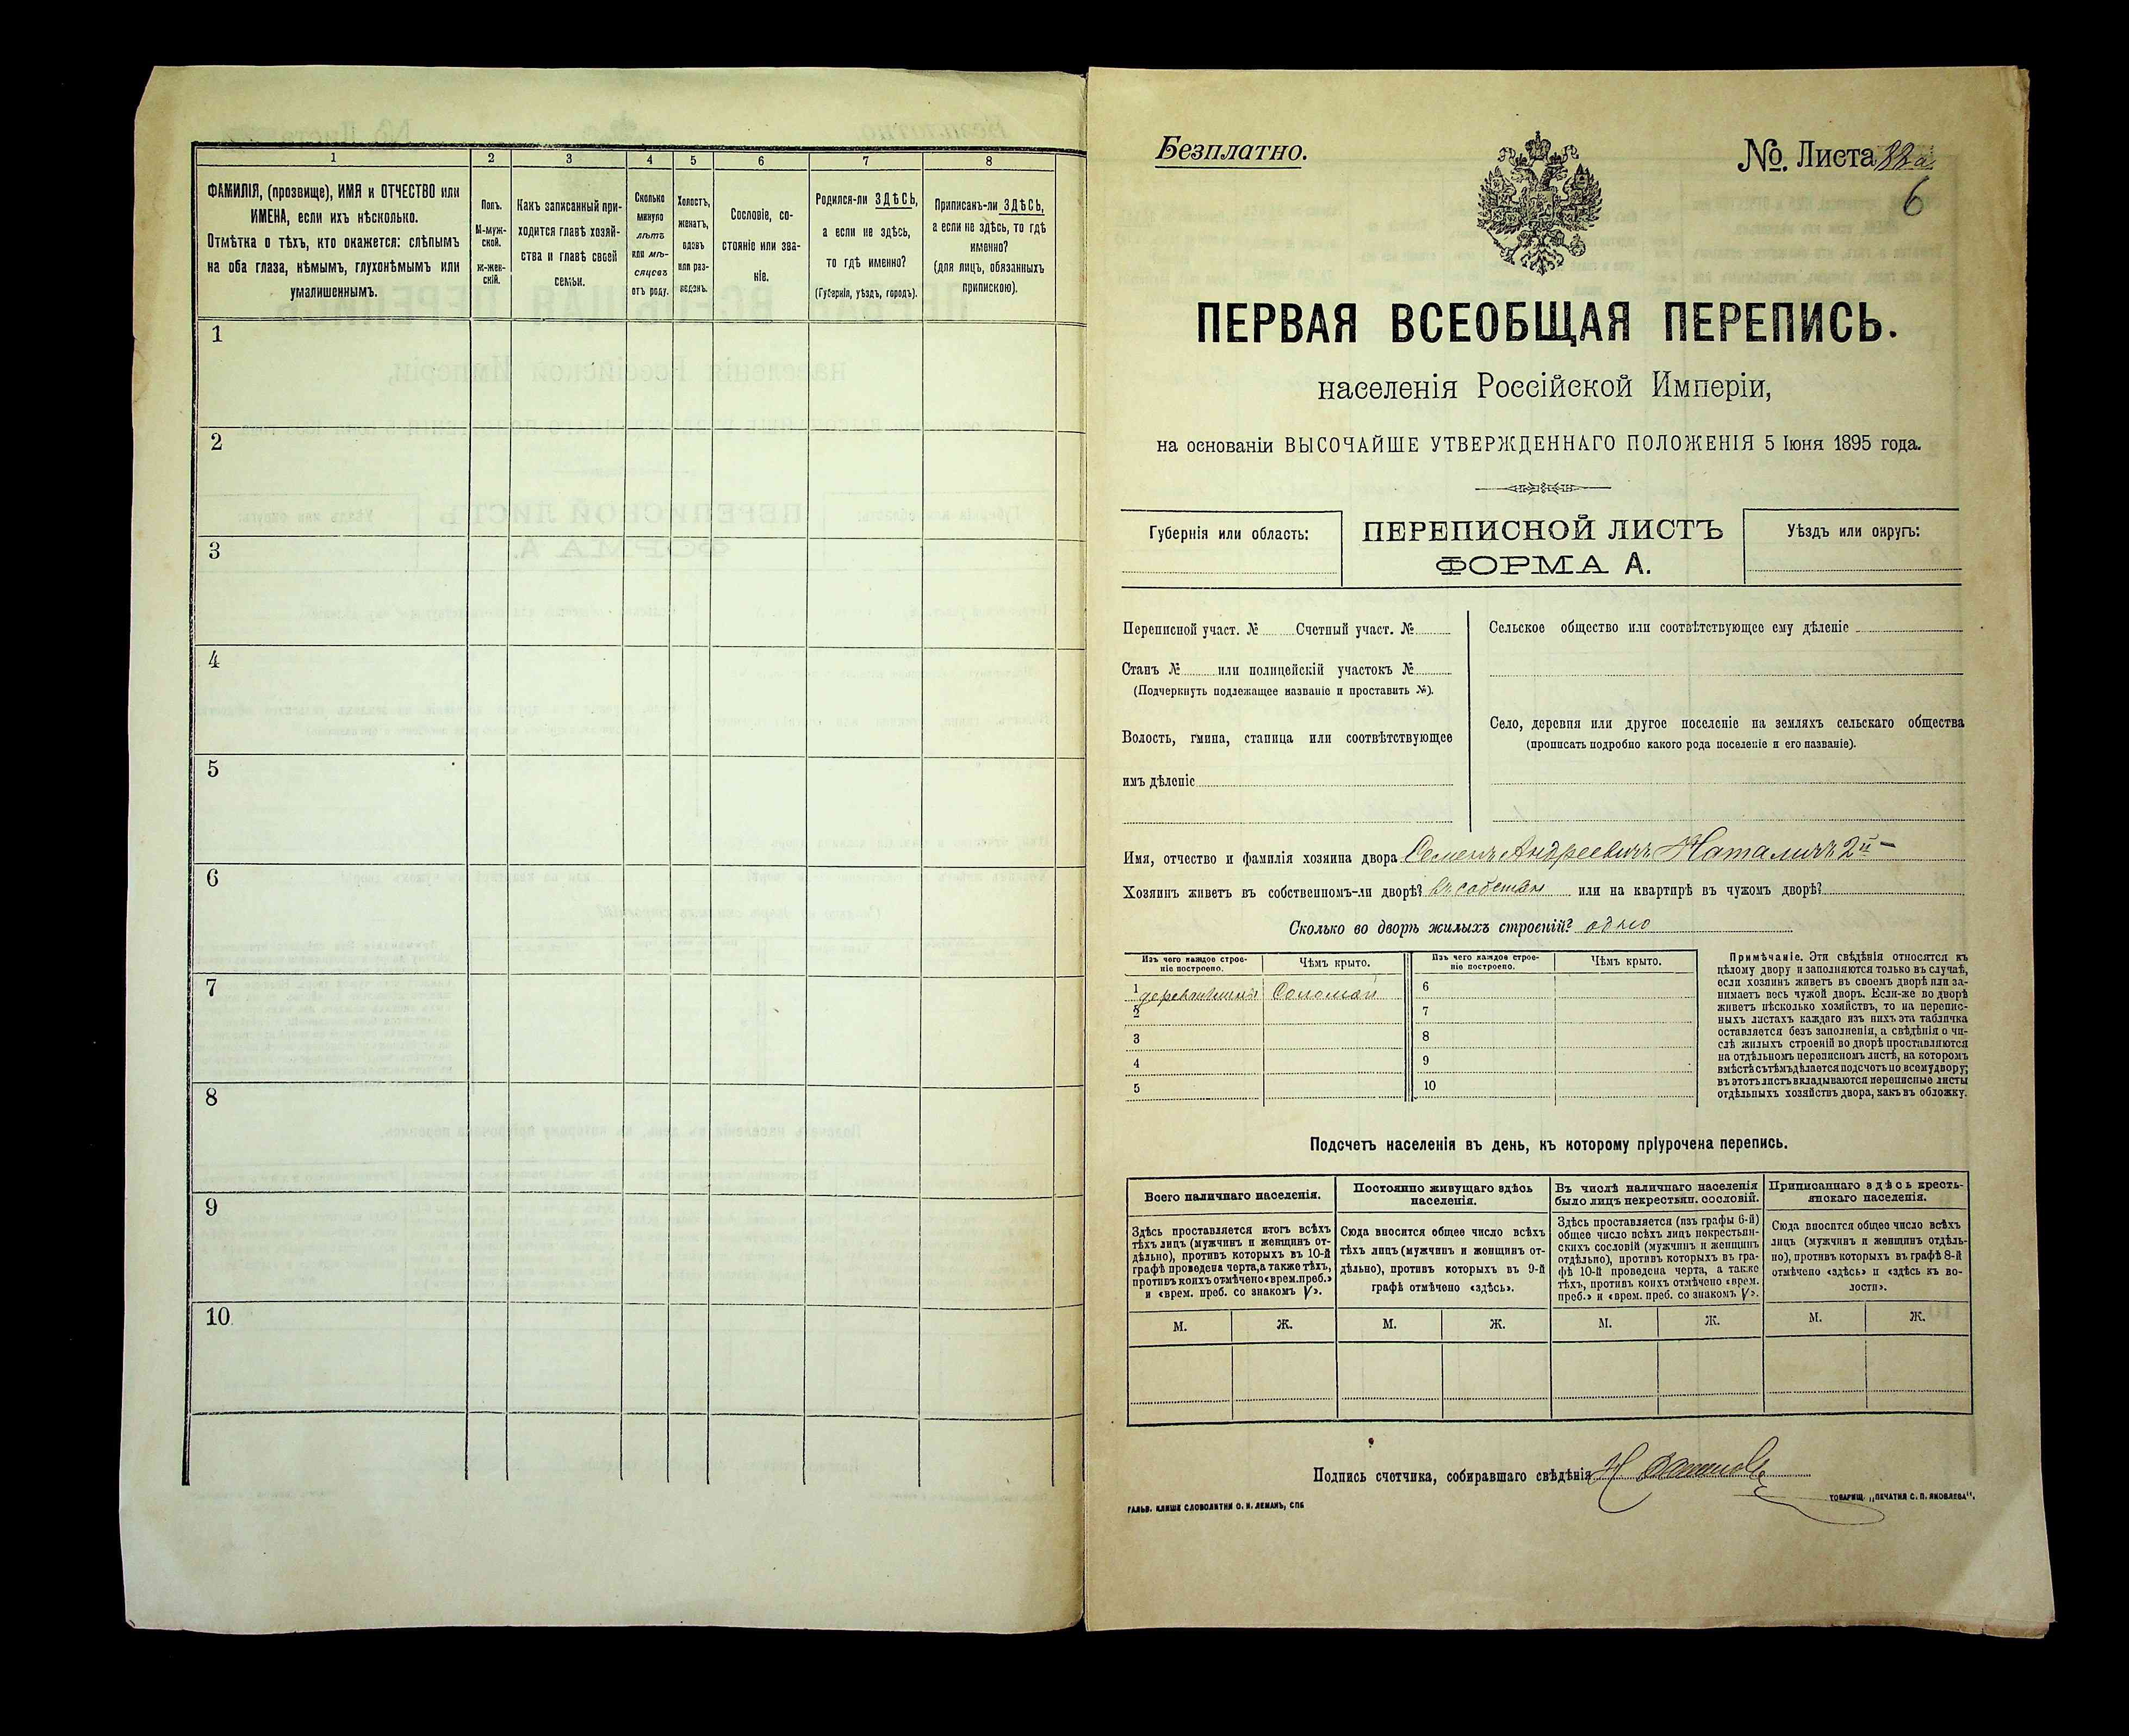 1
2
3
4
5
6
7
8
ФАМИЛІЯ, (прозвище), ИМЯ и ОТЧЕСТВО или
ИМЕНА, если ихъ нѣсколько.
Отмѣтка о тѣхъ, кто окажется: слѣпымъ
на оба глаза, нѣмымъ, глухонѣмымъ или
умалишеннымъ.
Полъ.
М-муж-
ской.
ж-жен-
скій.
Какъ записанный при-
ходится главѣ хозяй-
ства и главѣ своей
семьи.
Сколько
минуло
лѣтъ
или мѣ-
сяцевъ
отъ роду.
Холостъ,
женатъ,
вдовъ
или раз-
веденъ.
Сословіе, со-
стояніе или зва-
ніе.
Родился-ли ЗДѢСЬ,
а если не здѣсь,
то гдѣ именно?
(Губернія, уѣздъ, городъ).
Приписанъ-ли ЗДѢСЬ,
а если не здѣсь, то гдѣ
именно?
(для лицъ, обязанныхъ
припискою).
1
2
3
4
5
6
7
8
9
10
Безплатно.
№. Листа
6
ПЕРВАЯ ВСЕОБЩАЯ ПЕРЕПИСЬ.
населенія Россійской Имперіи,
на основаніи ВЫСОЧАЙШЕ УТВЕРЖДЕННАГО ПОЛОЖЕНІЯ 5 Іюня 1895 года.
Губернія или область:
ПЕРЕПИСНОЙ ЛИСТЪ
ФОРМА А.
Уѣздъ или округъ:
Переписной участ. № Счетный участ. №
Станъ № или полицейскій участокъ №
(Подчеркнуть подлежащее названіе и проставить №).
Волость, гмина, станица или соотвѣтствующее
имъ дѣленіе
Сельское общество или соотвѣтствующее ему дѣленіе
Село, деревня или другое поселеніе на земляхъ сельскаго общества
(прописать подробно какого рода поселеніе и его названіе).
Имя, отчество и фамилія хозяина двора Семенъ Андреевичъ 2й
Хозяинъ живетъ въ собственномъ-ли дворѣ? или на квартирѣ въ чужомъ дворѣ?
Сколько во дворѣ жилыхъ строеній? одно
Изъ чего каждое строе-
ніе построено.
Чѣмъ крыто.
Изъ чего каждое строе-
ніе построено.
Чѣмъ крыто.
1 Соломой
2
3
4
5
6
7
8
9
10
Примѣчаніе. Эти свѣдѣнія относятся къ
цѣлому двору и заполняются только въ случаѣ,
если хозяинъ живетъ въ своемъ дворѣ или за-
нимаетъ весь чужой дворъ. Если-же во дворѣ
живетъ нѣсколько хозяйствъ, то на перепис-
ныхъ листахъ каждаго изъ нихъ эта табличка
оставляется безъ заполненія, а свѣдѣнія о чи-
слѣ жилыхъ строеній во дворѣ проставляются
на отдѣльномъ переписномъ листѣ, на которомъ
вмѣстѣ съ тѣмъ дѣлается подсчетъ по всему двору;
въ этотъ листъ вкладываются переписные листы
отдѣльныхъ хозяйствъ двора, какъ въ обложку.
Подсчетъ населенія въ день, къ которому пріурочена перепись.
Всего наличнаго населенія.
Постоянно живущаго здѣсь
населенія.
Въ числѣ наличнаго населенія
было лицъ некрестьян. сословій.
Приписаннаго здѣсь кресть-
янскаго населенія.
Здѣсь проставляется итогъ всѣхъ
тѣхъ лицъ (мужчинъ и женщинъ от-
дѣльно), противъ которыхъ въ 10-й
графѣ проведена черта, а также тѣхъ,
противъ коихъ отмѣчено «врем. преб.»
и «врем. преб. со знакомъ V».
Сюда вносится общее число всѣхъ
тѣхъ лицъ (мужчинъ и женщинъ от-
дѣльно), противъ которыхъ въ 9-й
графѣ отмѣчено «здѣсь».
Здѣсь проставляется (изъ графы 6-й)
общее число всѣхъ лицъ некрестьян-
скихъ сословій (мужчинъ и женщинъ
отдѣльно), противъ которыхъ въ гра-
фѣ 10-й проведена черта, а также
тѣхъ, противъ коихъ отмѣчено «врем.
преб.» и «врем. преб. со знакомъ V».
Сюда вносится общее число всѣхъ
лицъ (мужчинъ и женщинъ отдѣль-
но), противъ которыхъ въ графѣ 8-й
отмѣчено «здѣсь» и «здѣсь къ во-
лости».
М.
Ж.
М.
Ж.
М.
Ж.
М.
Ж.
Подпись счетчика, собиравшаго свѣдѣнія
ГАЛЬВ. КЛИШЕ СЛОВОЛИТНИ О. И. ЛЕМАНЪ, СПБ
ТОВАРИЩ. „ПЕЧАТНЯ С. П. ЯКОВЛЕВА“.